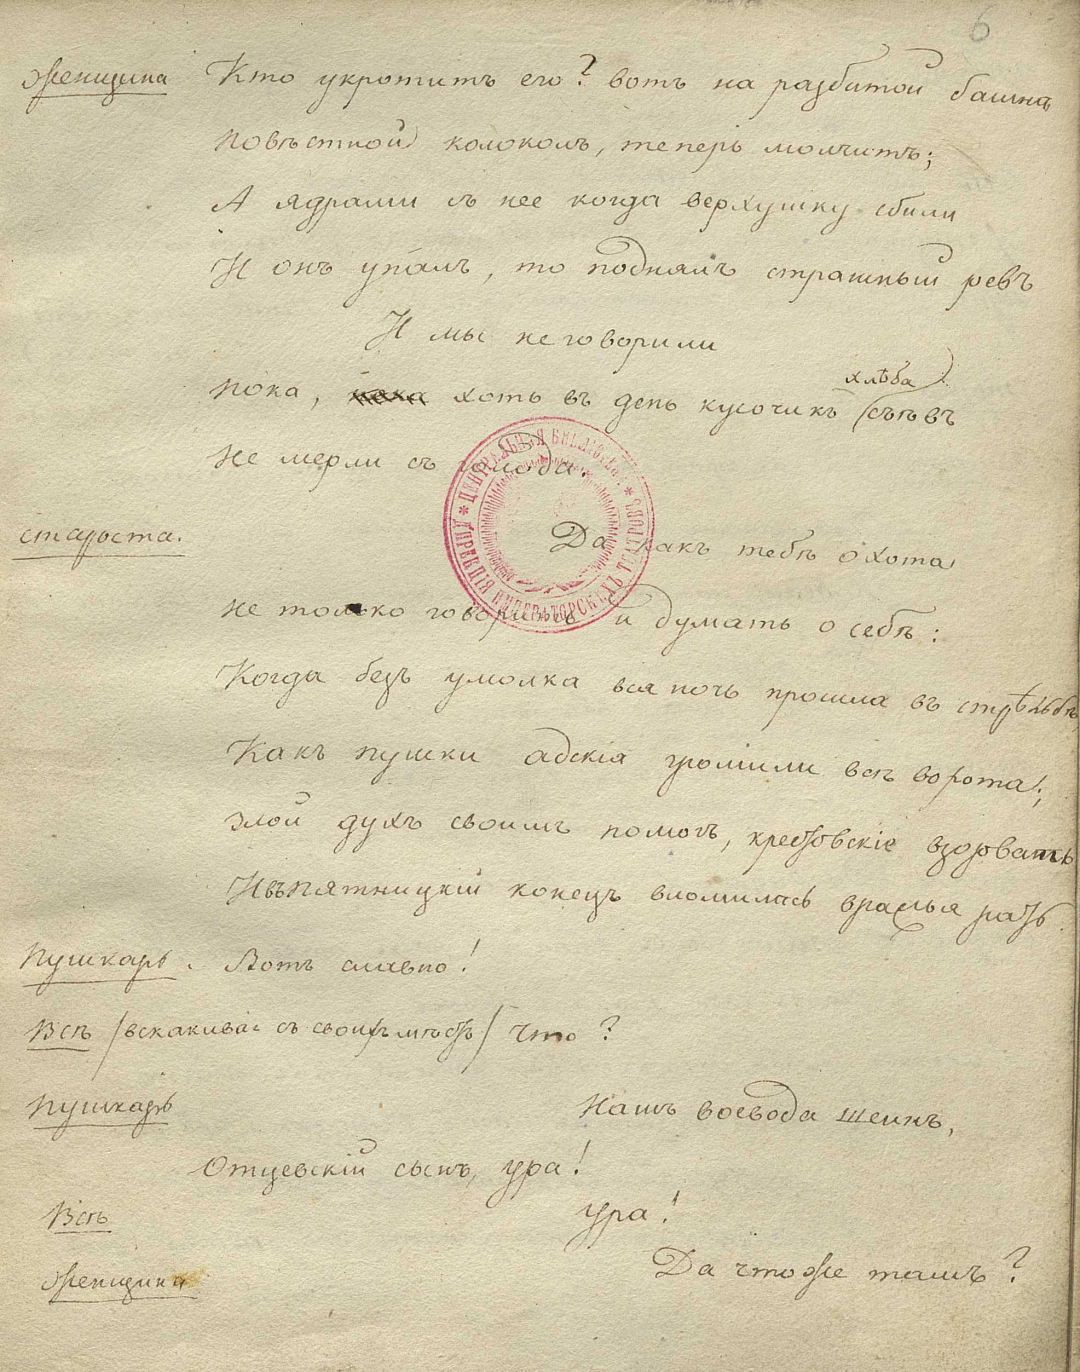 6
Женщина Кто укротитъ его? вотъ на разбитой башнѣ
Повѣстной колоколъ, теперь молчитъ;
А ядрами съ нее когда верхушку сбили
И онъ упалъ, то поднялъ страшный ревъ
И мы не говорили
Пока, хоть въ день кусочикъ (съѣвъ хлѣба)
Не мерли съ голода.
Староста. Да какъ тебѣ охота
не только говорить и думать о себѣ:
Когда безъ умолка вся ночь прошла въ стрѣльбѣ,
Какъ пушки адскія громили всѣ ворота;
злой духъ своимъ помогъ, крестовскіе взорвать
И въ Пятницкій конецъ вломилась вражья рать.
Пушкарь. Вотъ славно!
Всѣ /вскакивая съ своихъ мѣстъ/ Что?
Пушкарь Нашъ воевода шеинъ,
Отцевскій сынъ, ура!
Всѣ ура!
Женщина Да чтоже тамъ?
ЦЕНТРАЛЬНАЯ БИБЛІОТЕКА * ДИРЕКЦІЯ ИМПЕРАТОРСКИХЪ ТЕАТРОВЪ *